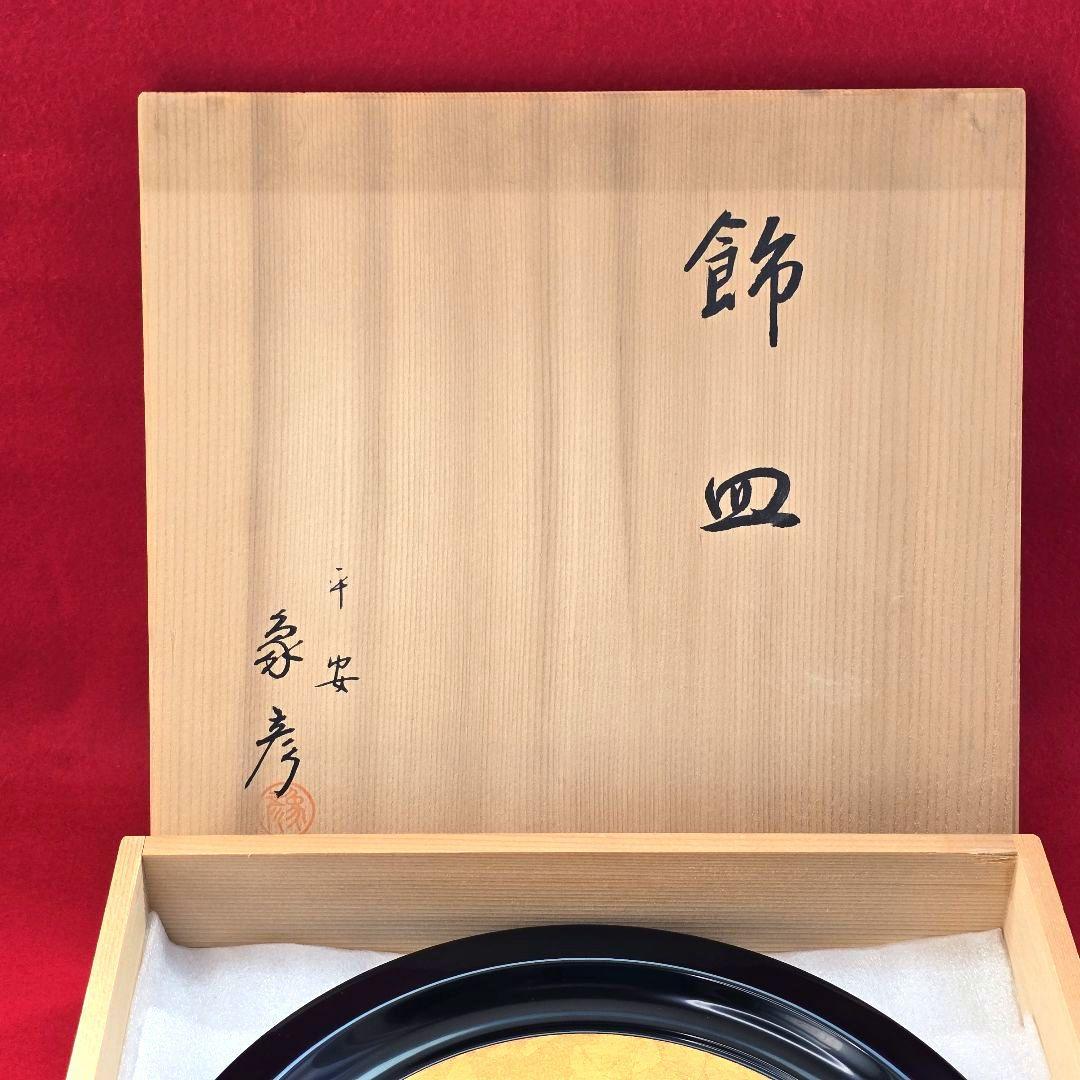 飾皿
平安
象彦